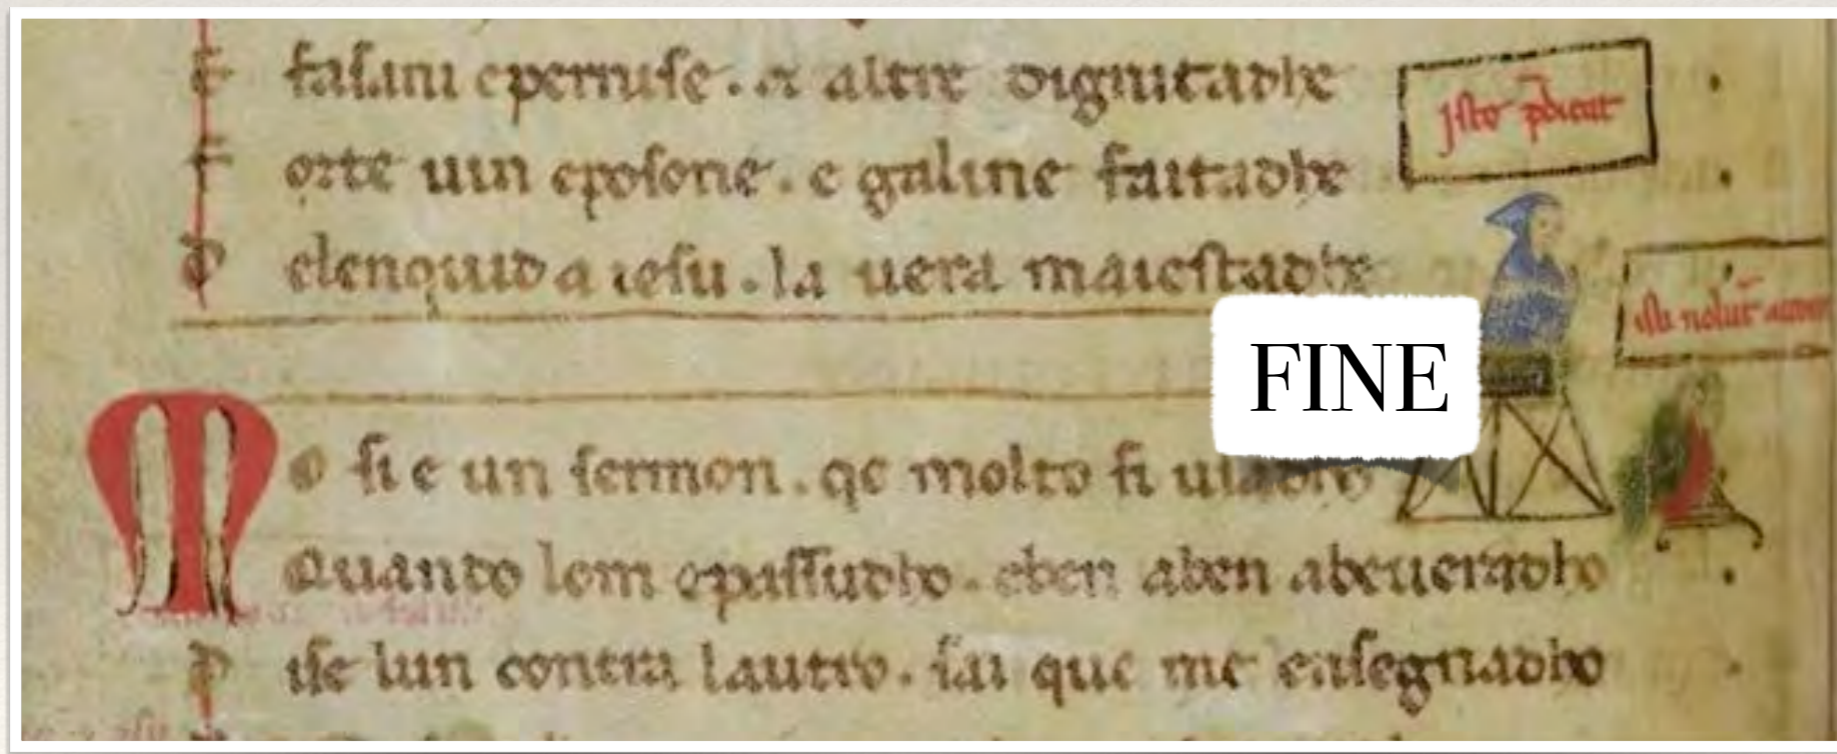 E faſani e perniſe . & altre dignitadhe
F orte uin e poſone . e galine faitadhe
D elenquid a ieſu . la uera maieſtadhe
iſto p̄dicat
iſti nolūt
FINE
M o ſi e un ſermon . qe molto fi
Quando lom e paſſudho . eben aben abeueradho
D iſe lun contra lautro . fai que me enſegnadho